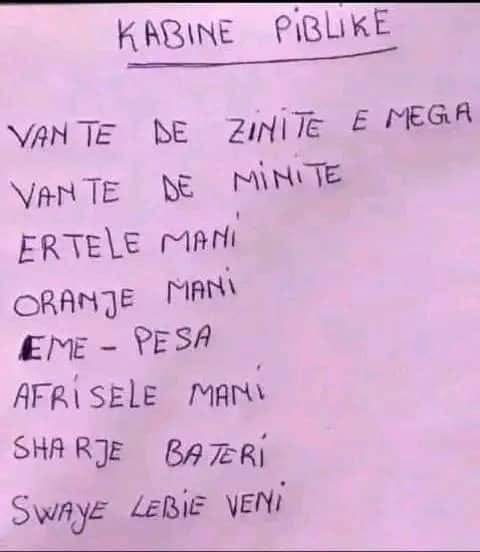 KABINE PiBLiKE
VANTE DE ZiNiTE E MEGA
VANTE DE MiNiTE
ERTELE MANi
ORANJE MANi
EME - PESA
AFRiSELE MANi
SHARJE BATERi
SWAYE LEBiE VENi